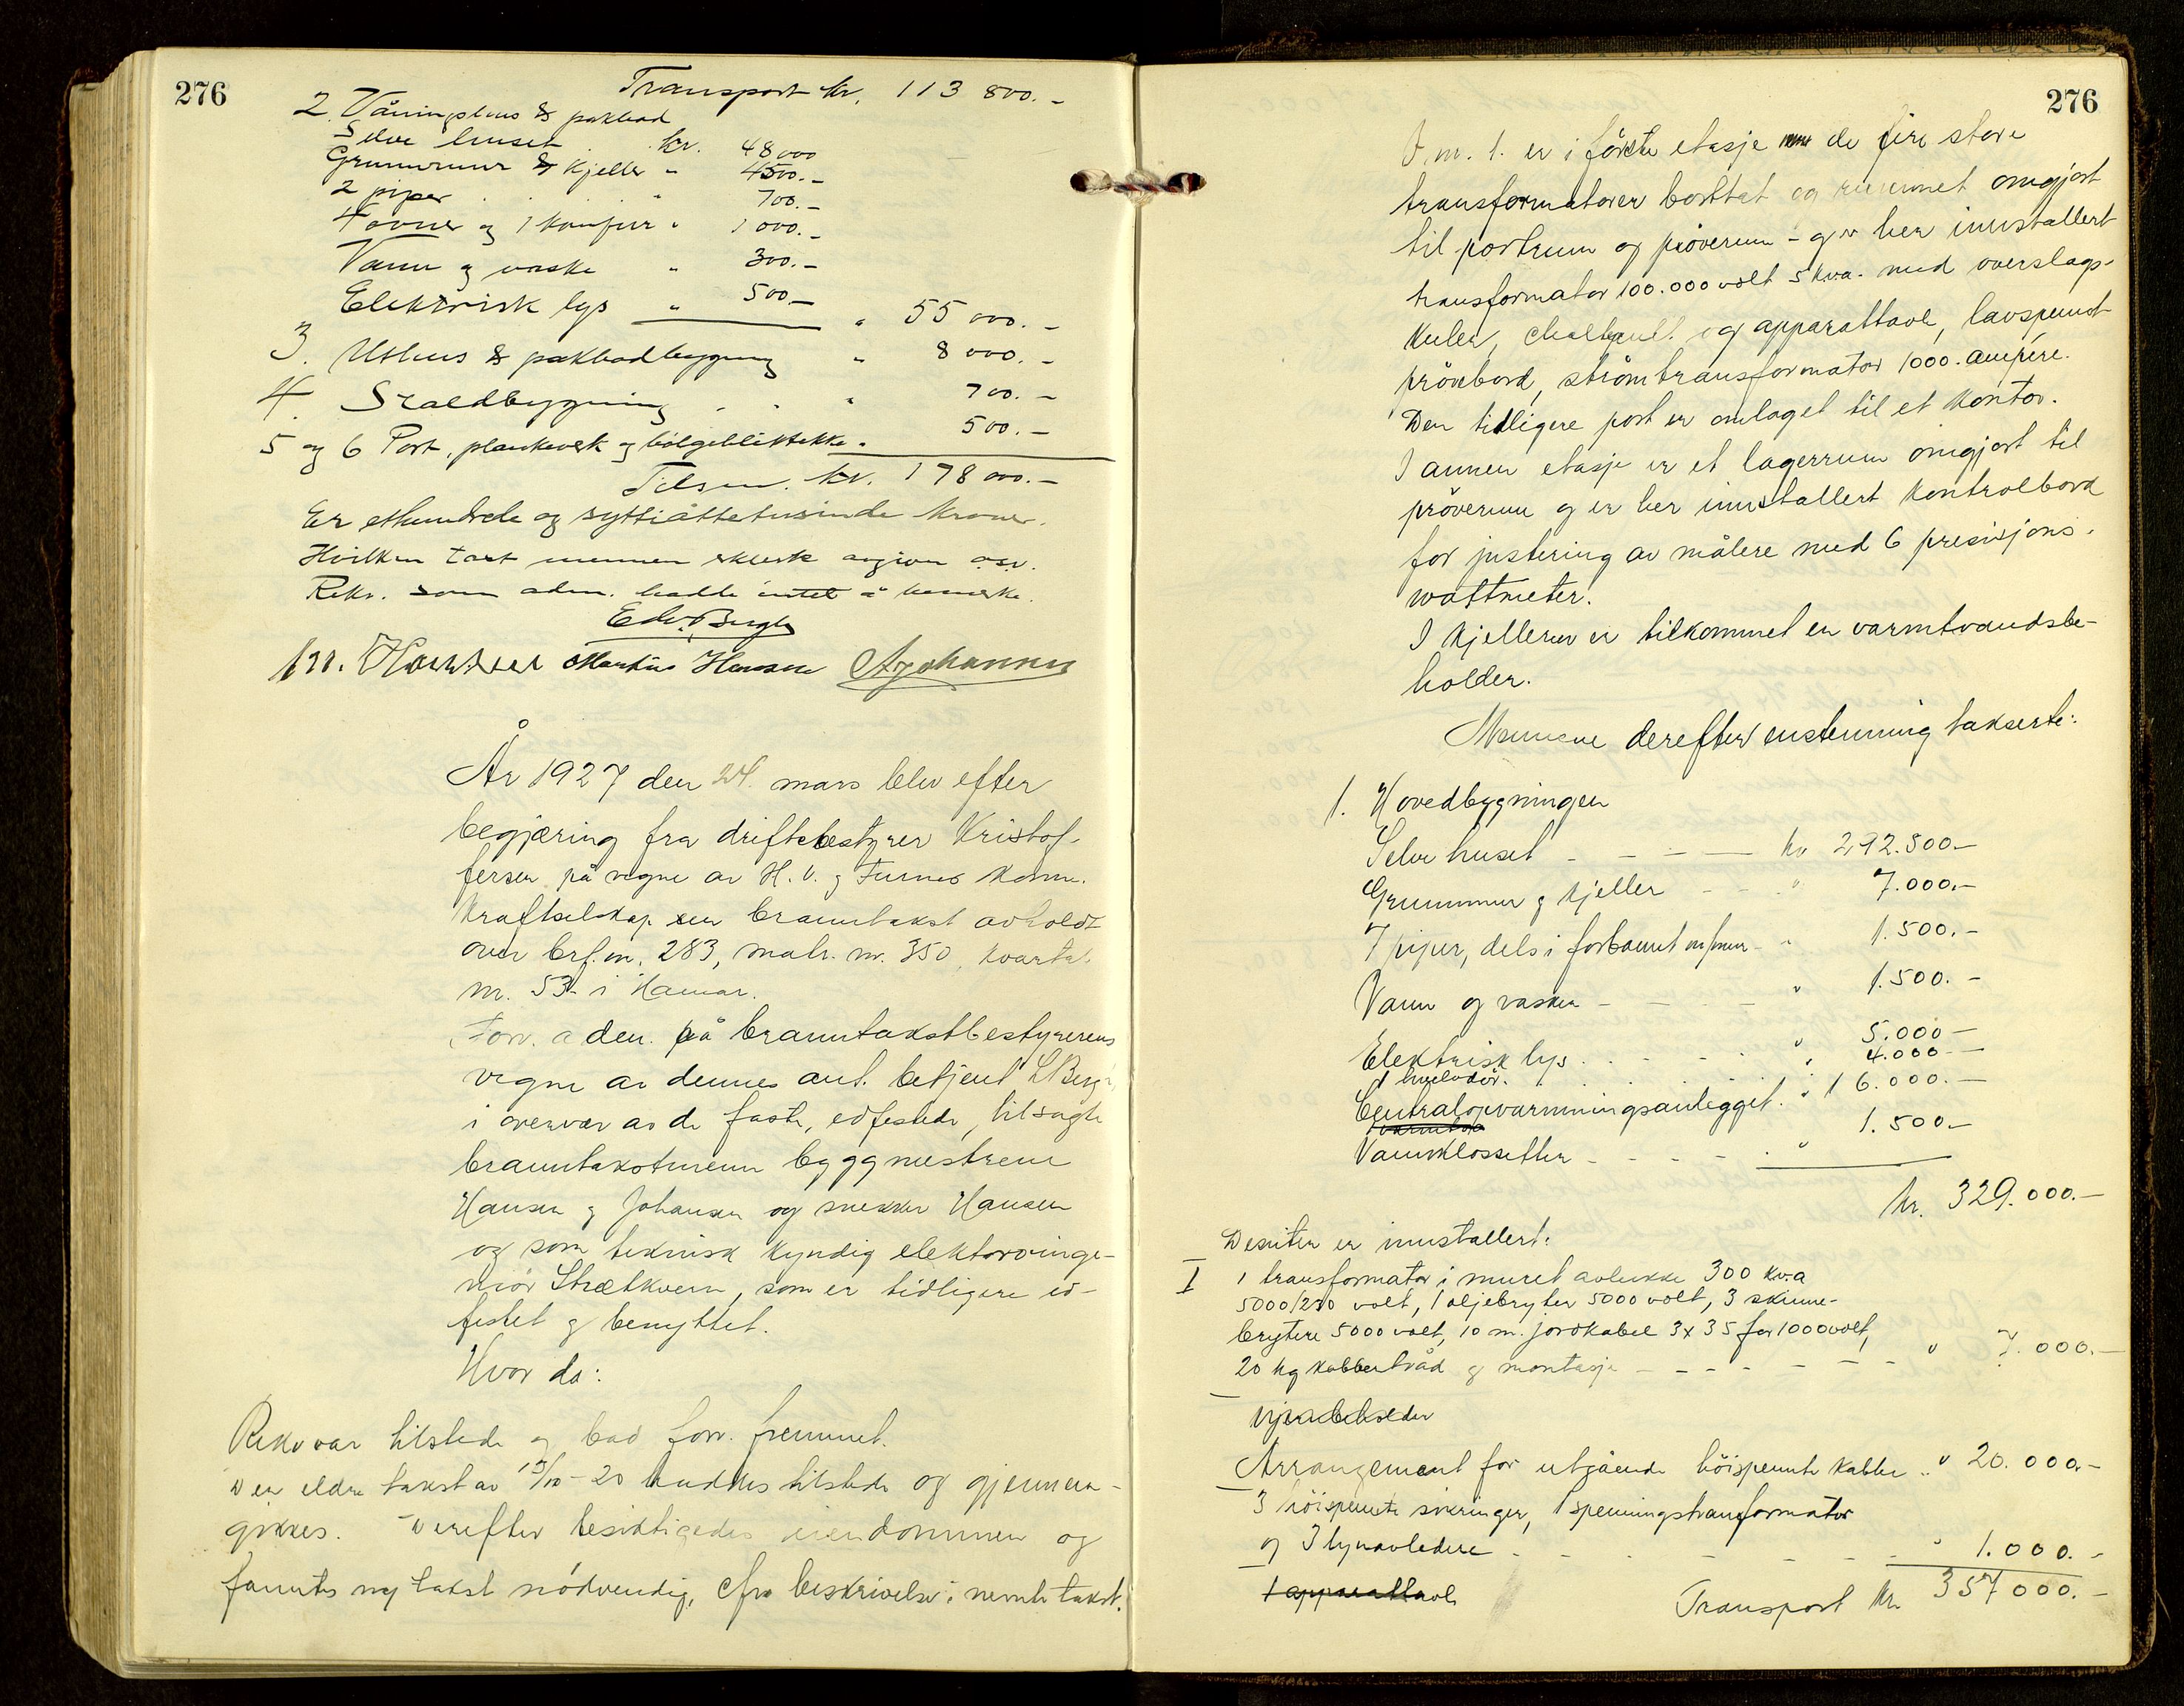 276
Transport kr. 113 800.-
2. Våningshus & pakbod
Selve huset . kr. 48 000
Grunnmur & kjeller " 4500.-
2 piper . . " 700.-
4 ovner og 1 komfur " 1 000.-
Vann og vaske " 300.-
Elektrisk lys " 500.- " 55 000.-
3. Uthus & pakbodbygning " 8 000.-
4. Staldbygning . . " 700.-
5 og 6 Port, plankeverk og bølgeblikktekke " 500.-
Tilsm. kr. 178 000.-
Er ethundrede og syttiåttetusinde kroner.
Hvilken takst mennene erklærte avgiven osv.
Rekv. som adm. hadde intet å bemerke.
Edv. Bergh
M. Hansen Martius Hansen A Johansen
År 1927 den 24. mars blev efter
begjæring fra driftsbestyrer Kristof-
fersen på vegne av H. V. og Furnes Komm.
Kraftselskap en branntakst avholdt
over brf. nr. 283, matr. nr. 350, kvartal
nr. 53 i Hamar.
Forr. a den. på branntakstbestyrerens
vegne av dennes aut. betjent L Bergh,
i overvær av de faste, edfestede, tilsagte
branntakstmenn byggmestrene
Hansen og Johansen og snekker Hansen
og som teknisk kyndig elektroinge-
niör Strætkvern, som er tidligere ed-
festet og benyttet.
Hvor da:
Rekv var tilstede og bad forr. fremmet.
Den eldre takst av 15/10-20 hadtes tilstede og gjennem-
gikkes. Derefter besiktigedes eiendommen og
fanntes ny takst nödvendig, cfr beskrivelse i nevnte takst.
276
I nr. 1. er i förste etasje de fire store
transformatorer borttat og rummet omgjort
til portrum og pröverum - og er her innstallert
transformator 100.000 volt 5 kva. med overslags-
kuler, og apparattavle, lavspennt
prövebord, strömtransformator 1000 ampére.
Den tidligere port er omlaget til et kontor.
I annen etasje er et lagerrum omgjort til
pröverum og er her innstallert kontrolbord
for justering av målere med 6 presisjons-
wattmeter.
I kjelleren er tilkommet en varmtvandsbe-
holder.
Mennene derefter enstemmig takserte:
1. Hovedbygningen
Selve huset - - - - kr 292.500.-
Grunnmur og kjeller - - - " 7.000.-
7 piper, dels i forbannt m/mur - " 1.500.-
Vann og vasker - - - - " 1.500.-
Elektrisk lys . - - - . " 5.000.-
1 hvelvdör. . . . . . " 4.000.-
Centralopvarmningsanlegget . " 16.000.-
Vannklossetter - - - - . " 1.500.-
kr. 329.000.-
Desuten er innstallert:
I 1 transformator i muret avlukke 300 kva
5000/230 volt, 1 oljebryter 5000 volt, 3 skinne-
brytere 5000 volt, 10 m. jordkabel 3x35 for 1000 volt,
20 kg kobbertråd og montasje - - - - - - " 7.000.-
Arrangement for utgående höispennte kabler .. " 20.000.-
3 höispennte sikringer, 1 spenningstransformator
og 3 lynavledere - - - - - - - " 1.000.-
1 apparattavle
Transport kr. 357000.-